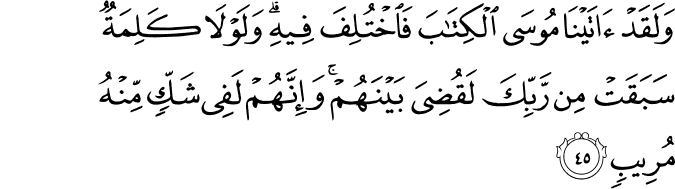 وَلَقَدْ ءَاتَيْنَا مُوسَى ٱلْكِتَـٰبَ فَٱخْتُلِفَ فِيهِ ۗ وَلَوْلَا كَلِمَةٌۭ
سَبَقَتْ مِن رَّبِّكَ لَقُضِىَ بَيْنَهُمْ ۚ وَإِنَّهُمْ لَفِى شَكٍّۢ مِّنْهُ
مُرِيبٍۢ ٤٥